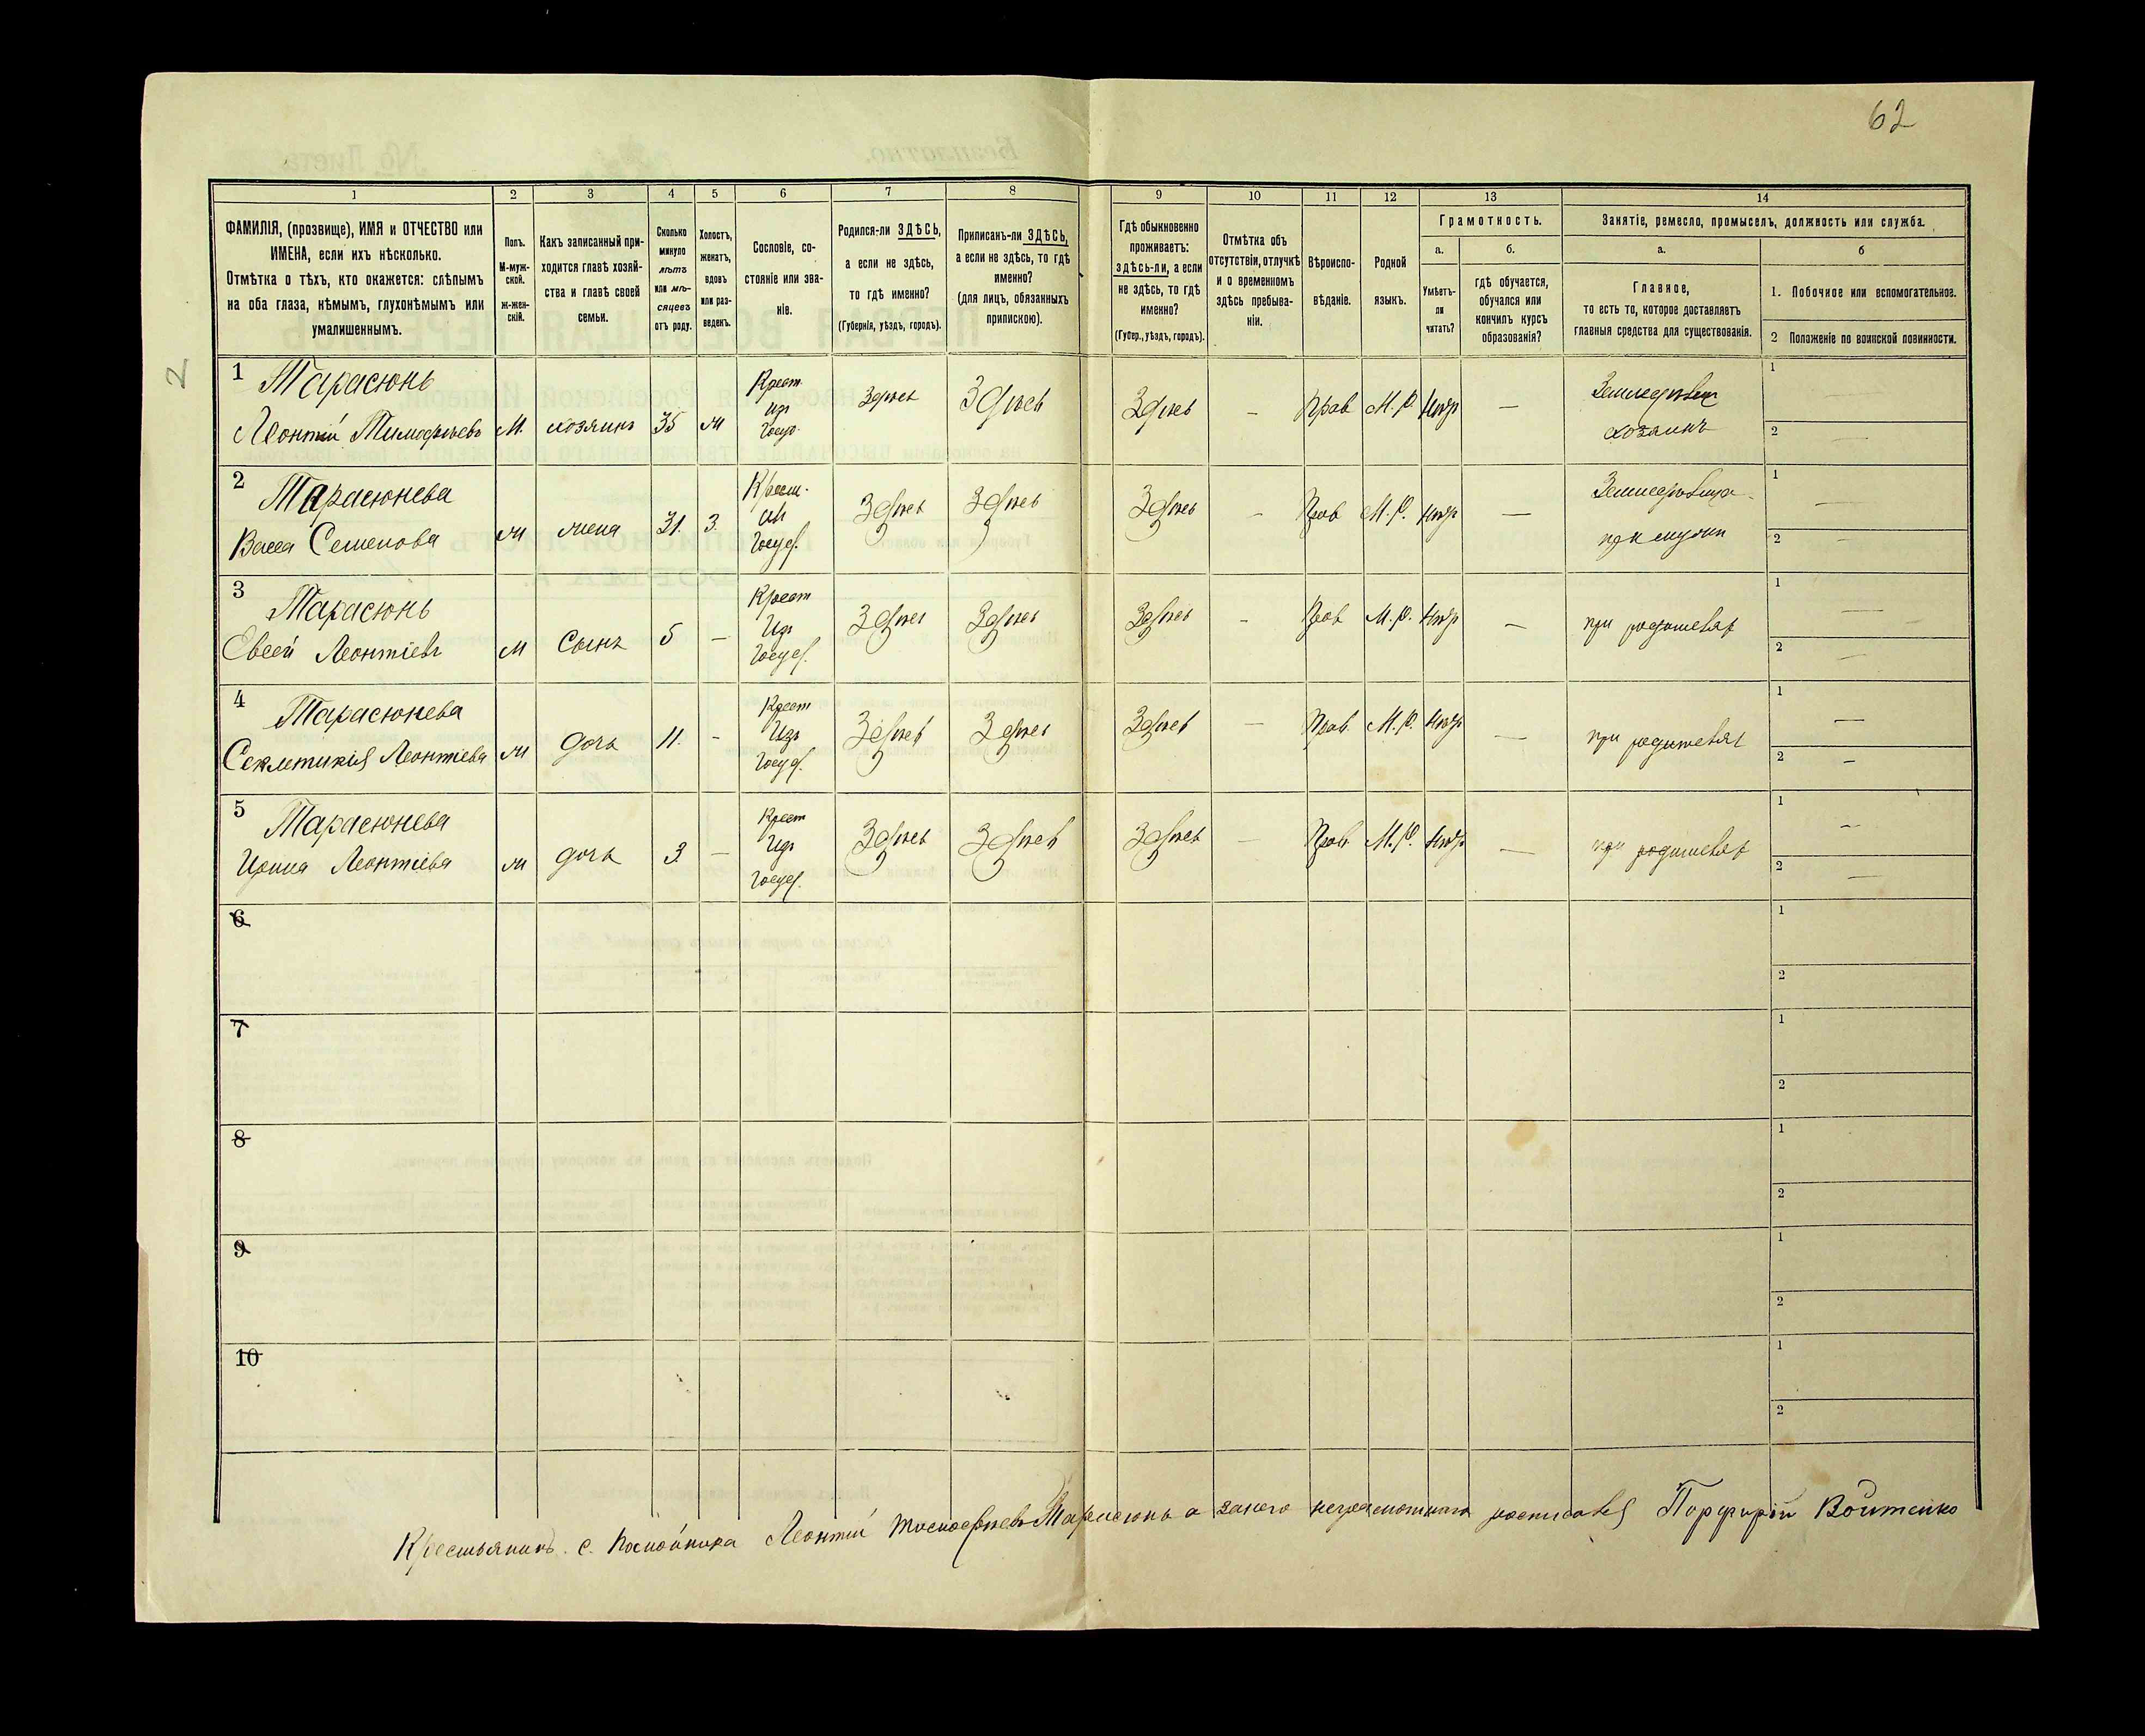 62
1
2
3
4
5
6
7
8
9
10
11
12
13
14
ФАМИЛІЯ, (прозвище), ИМЯ и ОТЧЕСТВО или
ИМЕНА, если ихъ нѣсколько.
Отмѣтка о тѣхъ, кто окажется: слѣпымъ
на оба глаза, нѣмымъ, глухонѣмымъ или
умалишеннымъ.
Полъ.
М-муж-
ской.
ж-жен-
скій.
Какъ записанный при-
ходится главѣ хозяй-
ства и главѣ своей
семьи.
Сколько
минуло
лѣтъ
или мѣ-
сяцевъ
отъ роду.
Холостъ,
женатъ,
вдовъ
или раз-
веденъ.
Сословіе, со-
стояніе или зва-
ніе.
Родился-ли ЗДѢСЬ,
а если не здѣсь,
то гдѣ именно?
(Губернія, уѣздъ, городъ).
Приписанъ-ли ЗДѢСЬ,
а если не здѣсь, то гдѣ
именно?
(для лицъ, обязанныхъ
припискою).
Гдѣ обыкновенно
проживаетъ:
здѣсь-ли, а если
не здѣсь, то гдѣ
именно?
(Губер., уѣздъ, городъ).
Отмѣтка объ
отсутствіи, отлучкѣ
и о временномъ
здѣсь пребыва-
ніи.
Вѣроиспо-
вѣданіе.
Родной
языкъ.
Грамотность.
а.
Умѣетъ-
ли
читать?
б.
гдѣ обучается,
обучался или
кончилъ курсъ
образованія?
Занятіе, ремесло, промыселъ, должность или служба.
а.
Главное,
то есть то, которое доставляетъ
главныя средства для существованія.
б
1. Побочное или вспомогательное.
2 Положеніе по воинской повинности.
2
1 Тарасюнь
Леонтій Тимофѣевъ М. хозяинъ 35 ж Крест. изъ Госуд. Здѣсь Здѣсь Здѣсь — Прав М.Р. Нѣтъ — Земледѣлец хозяинъ 1 — 2 —
2 Тарасюнева
Васса Семенова ж жена 31. З. Крест. из Госуд. Здѣсь Здѣсь Здѣсь — Прав М.Р. Нѣтъ — при мужи 1 — 2 —
3 Тарасюнь
Евсей Леонтіевъ М Сынъ 5 — Крест Изъ Госуд. Здѣсь Здѣсь Здѣсь — Прав М.Р. Нѣтъ — при родителях 1 — 2 —
4 Тарасюнева
Секлетикія Леонтіева ж дочь 11. - Крест Изъ Госуд. Здѣсь Здѣсь Здѣсь — Прав. М.Р. Нѣтъ — при родителях 1 — 2 —
5 Тарасюнева
Ирина Леонтіева ж дочь 3 — Крест Изъ Госуд. Здѣсь Здѣсь Здѣсь — Прав. М.Р. Нѣтъ — при родителях 1 — 2 —
6 1 2
7 1 2
8 1 2
9 1 2
10 1 2
Крестьянинъ с. Леонтій Тимофѣевъ Тарасюнь а занего неграмотнаго росписался Порфирій Войтенко